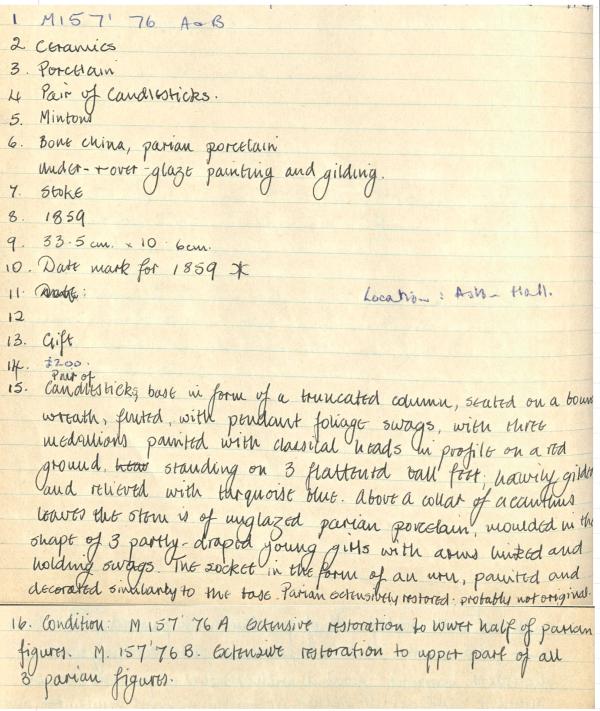 1 M157' 76 A & B
2 Ceramics
3. Porcelain
4 Pair of Candlesticks.
5. Mintons
6. Bone china, parian porcelain
under- + over-glaze painting and gilding.
7. Stoke
8. 1859
9. 33.5cm. x 10.6cm.
10. Date mark for 1859
11. Location: Ash Hall.
12
13. Gift
14. £200.
Pair of
15. Candlesticks, base in form of a truncated column, seated on a bound
wreath, fluted, with pendant foliage swags, with three
medallions painted with classical heads in profile on a red
ground, standing on 3 flattened ball feet, heavily gilded
and relieved with turquoise blue. Above a collar of acanthus
leaves the stem is of unglazed parian porcelain, moulded in the
shape of 3 partly-draped young girls with arms linked and
holding swags. The socket in the form of an urn, painted and
decorated similarly to the base. Parian extensively restored - probably not original.
16. Condition: M157' 76 A Extensive restoration to lower half of parian
figures. M. 157'76 B. Extensive restoration to upper part of all
3 parian figures.